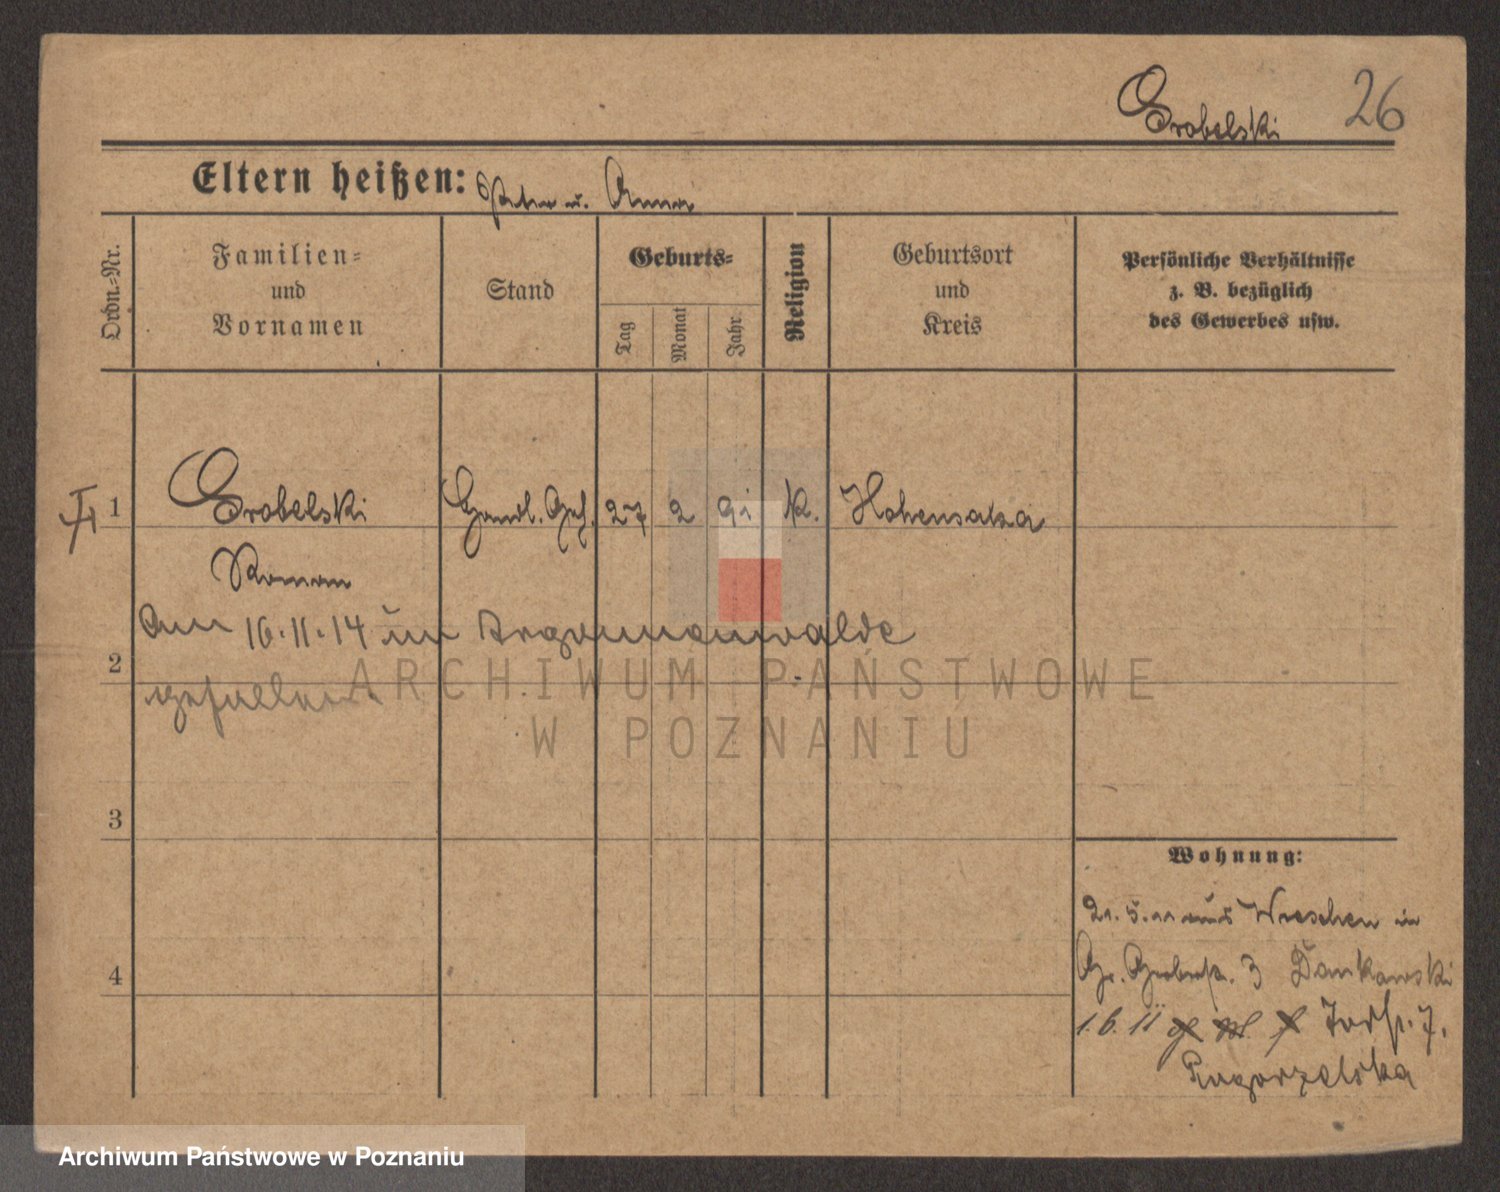 Grobelski 26
Eltern heißen: Peter u. Anna
Ordn.-Nr.
Familien-
und
Vornamen
Stand
Geburts-
Tag
Monat
Jahr
Religion
Geburtsort
und
Kreis
Persönliche Verhältnisse
z. B. bezüglich
des Gewerbes usw.
1 Grobelski Handl. Geh. 27 2 91 K. Hohensalza
Roman
Am 16.11.14 im Argonnenwalde
2
gefallen.
3
4
Wohnung:
21.5.11 aus Wreschen in
Gr. Gerberstr. 3 Dankowski
1.6.11 7.
Pogorzelska
ARCHIWUM PAŃSTWOWE
W POZNANIU
Archiwum Państwowe w Poznaniu